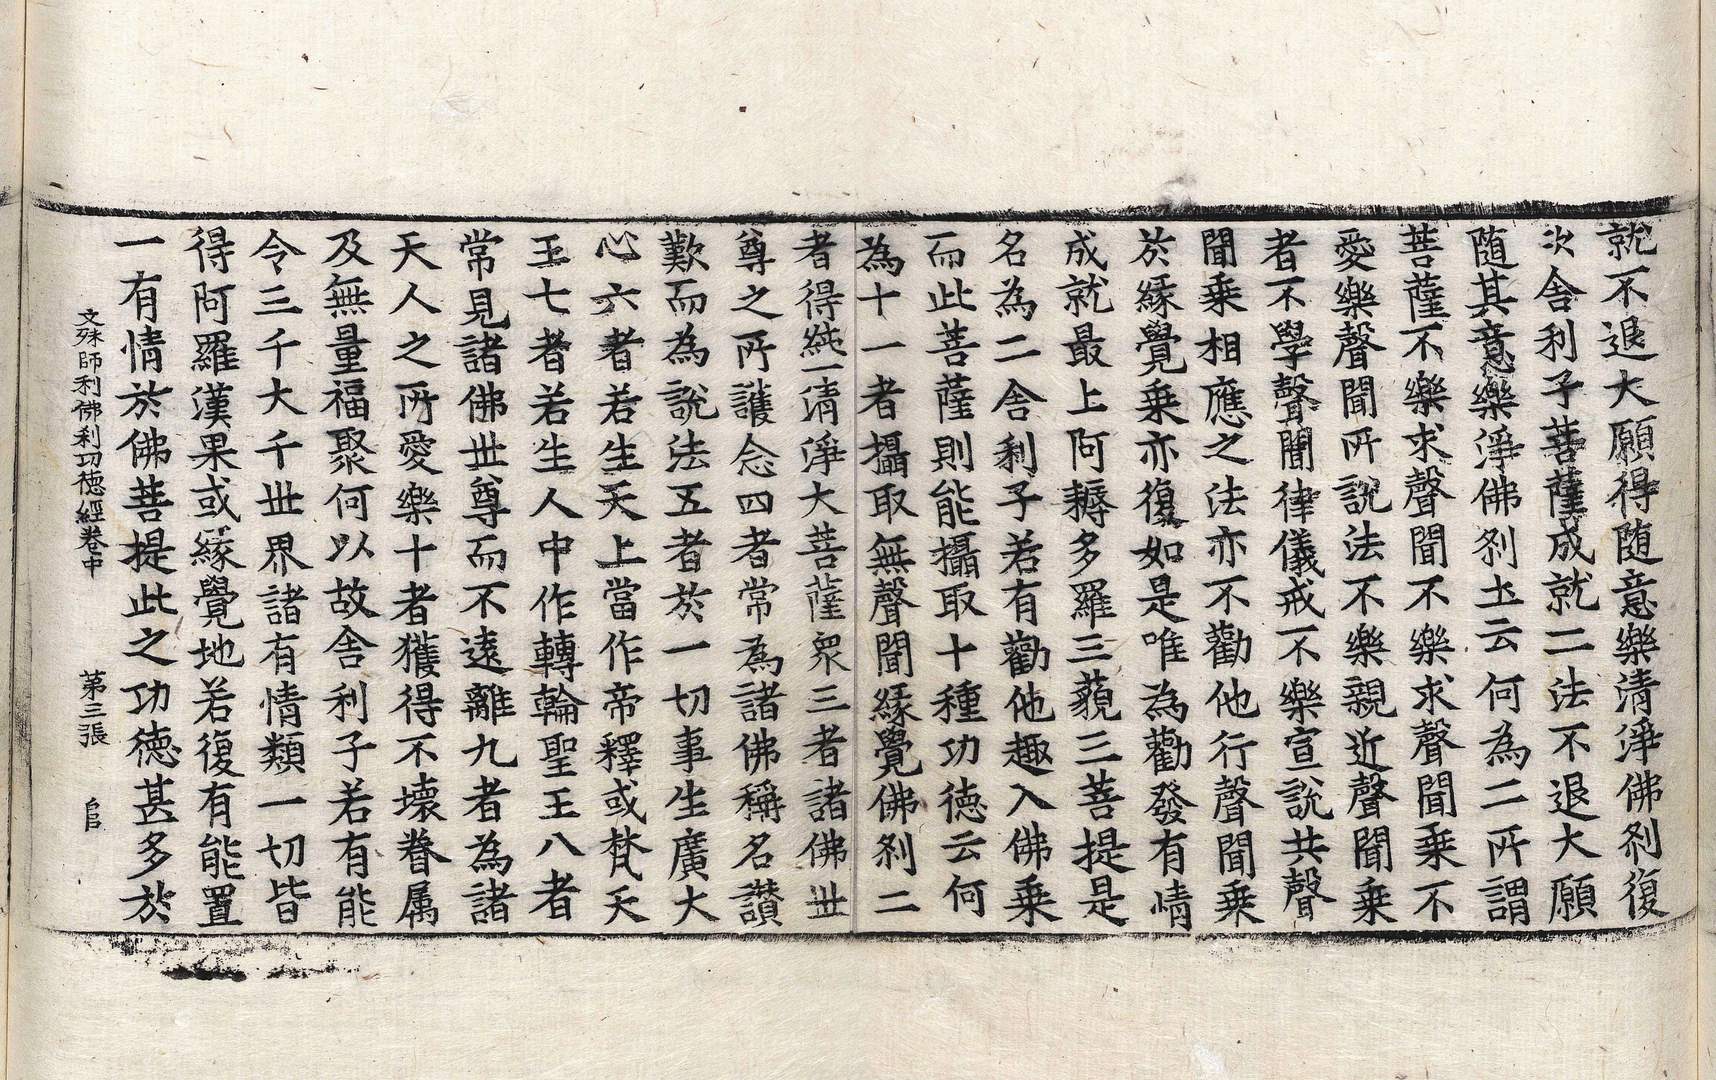 就不退大願得随意樂清淨佛刹復
次舍利子菩薩成就二法不退大願
随其意樂淨佛刹土云何為二所謂
菩薩不樂求聲聞不樂求聲聞乗不
愛樂聲聞所說法不樂親近聲聞乗
者不學聲聞律儀戒不樂宣說共聲
聞乗相應之法亦不勸他行聲聞乗
於緣覺乗亦復如是唯為勸發有情
成就最上阿耨多羅三藐三菩提是
名為二舍利子若有勸他趣入佛乗
而此菩薩則能攝取十種功德云何
為十一者攝取無聲聞緣覺佛刹二
者得純一清淨大菩薩眾三者諸佛世
尊之所護念四者常為諸佛稱名讃
歎而為說法五者於一切事生廣大
心六者若生天上當作帝釋或梵天
王七者若生人中作轉輪聖王八者
常見諸佛世尊而不遠離九者為諸
天人之所愛樂十者獲得不壞眷属
及無量福聚何以故舍利子若有能
令三千大千世界諸有情類一切皆
得阿羅漢果或緣覺地若復有能置
一有情於佛菩提此之功德甚多於
文殊師利佛刹功德經卷中 第三張